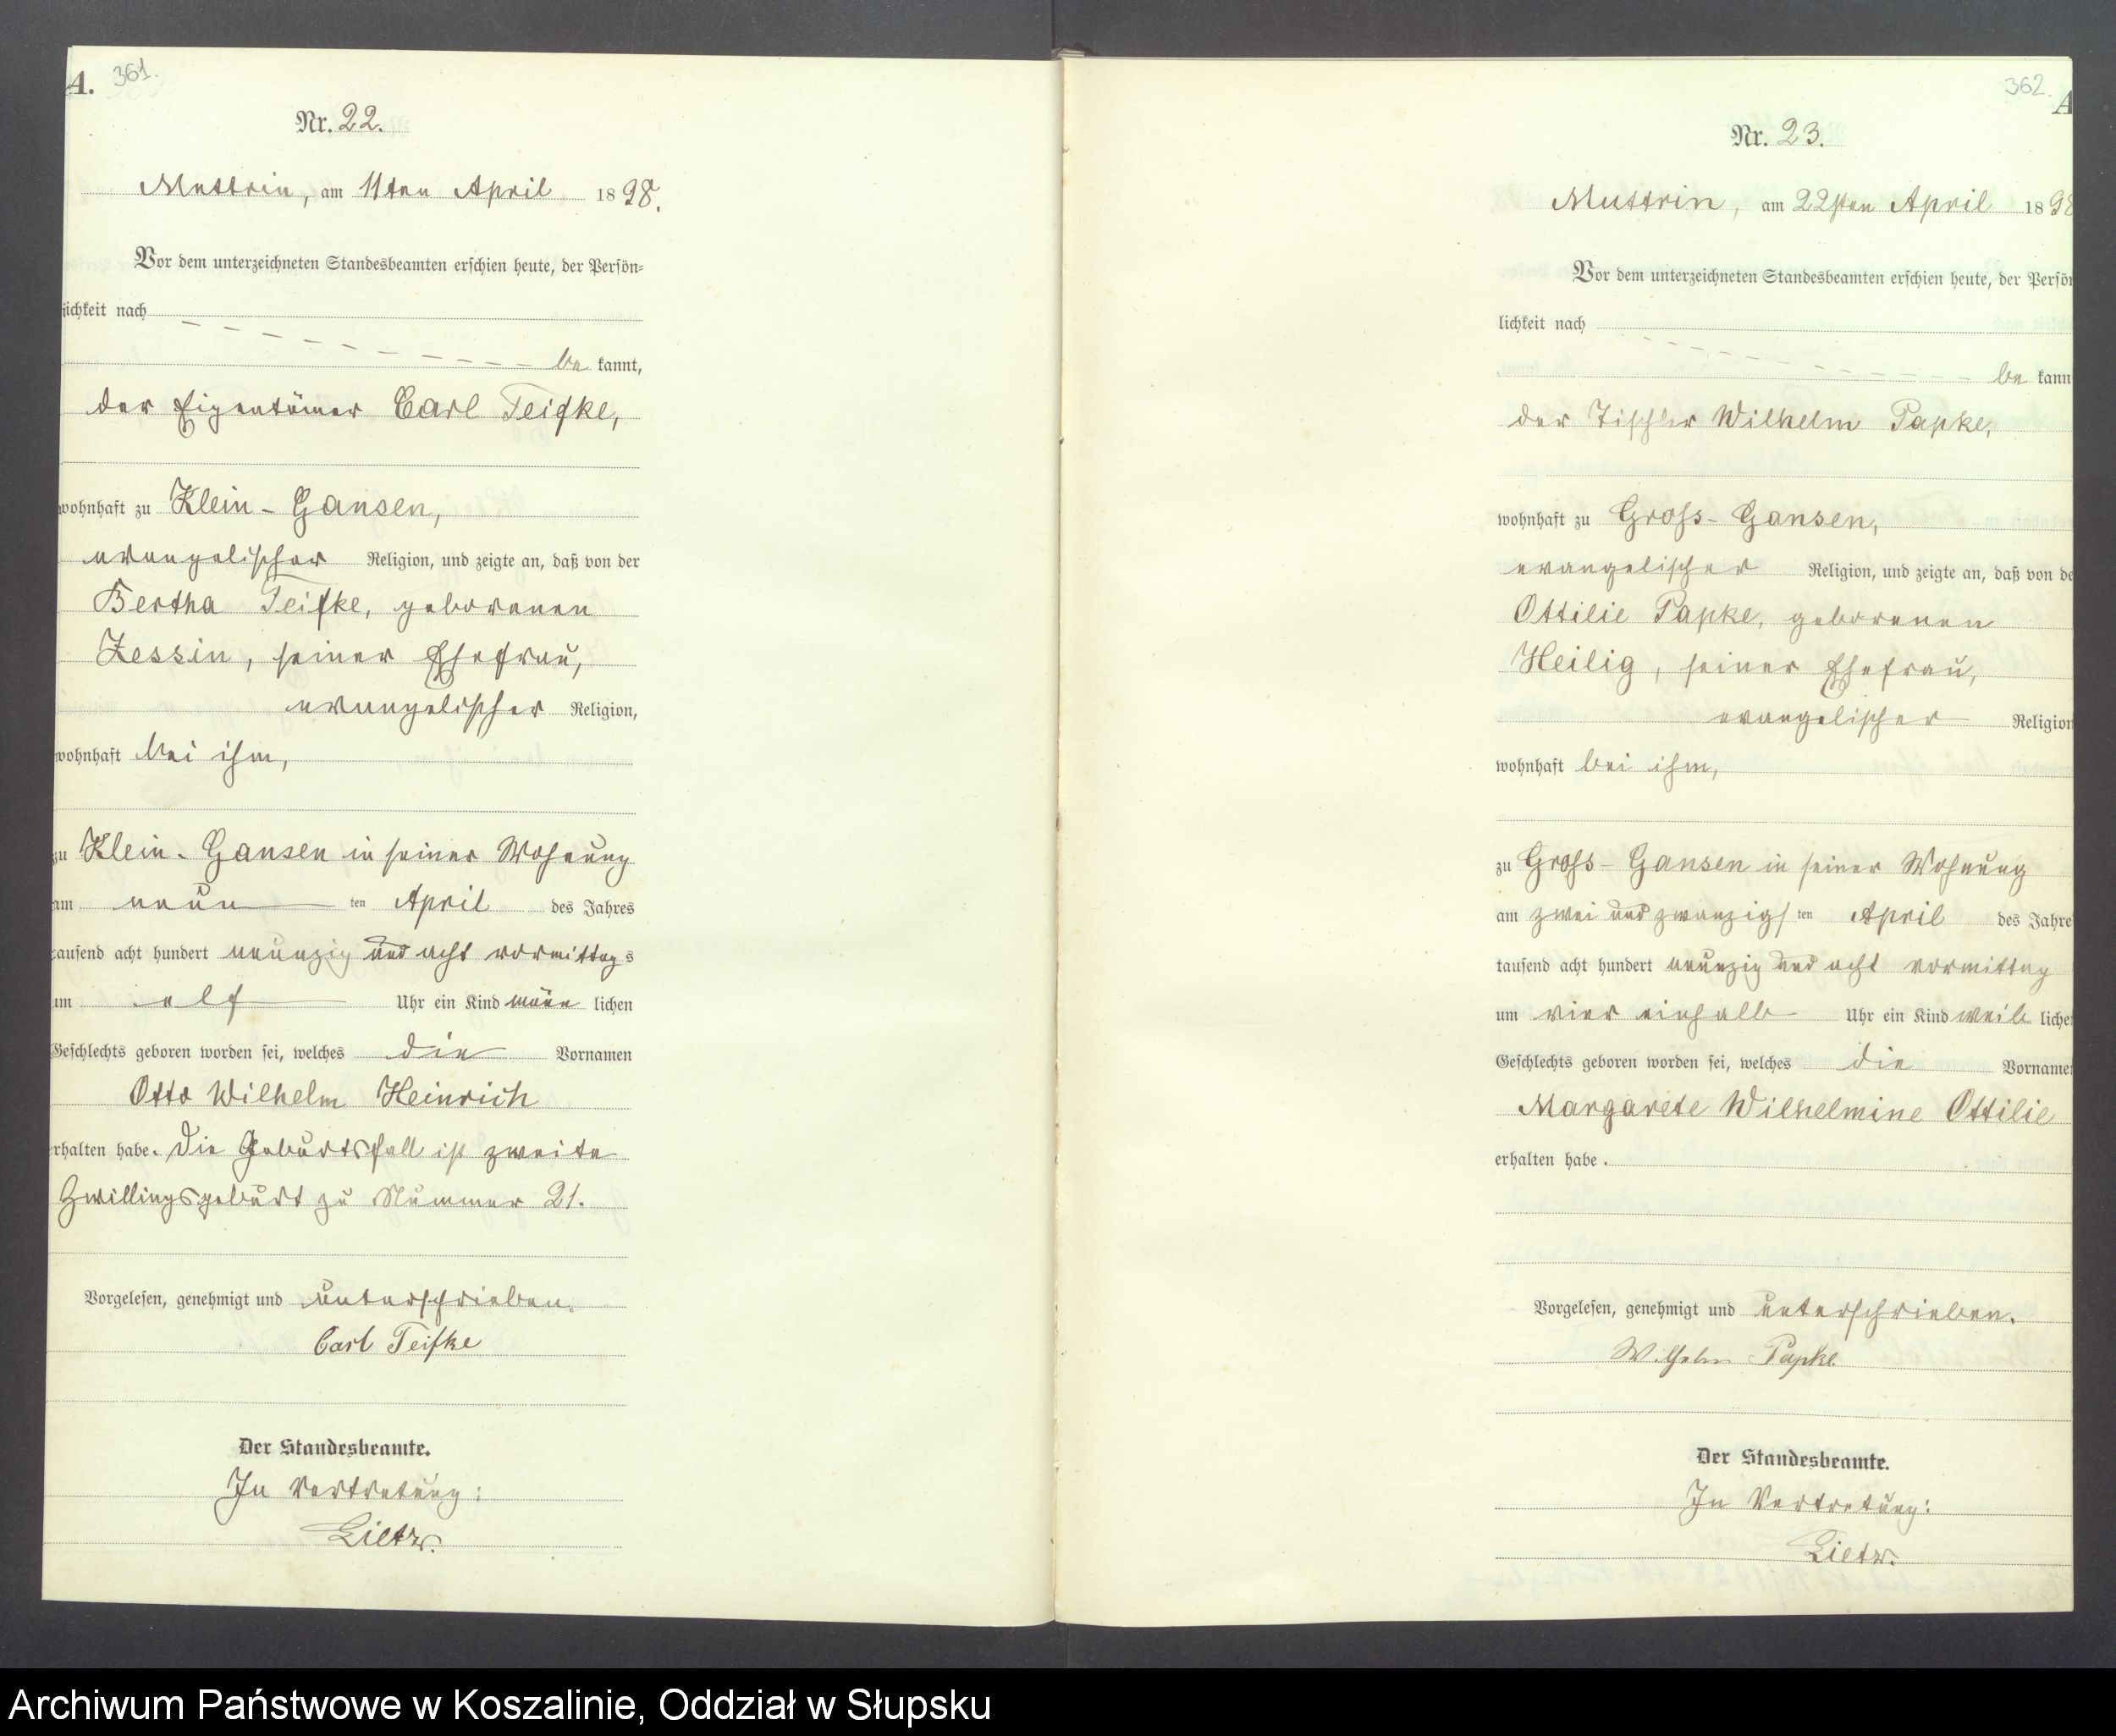 A. 361.
Nr. 22.
Muttrin, am 11ten April 1898.
Vor dem unterzeichneten Standesbeamten erschien heute, der Persön-
lichkeit nach
be kannt,
der Eigentümer Carl Teifke,
wohnhaft zu Klein-Gansen,
evangelischer Religion, und zeigte an, daß von der
Bertha Teifke, geborenen
Zessin, seiner Ehefrau,
evangelischer Religion,
wohnhaft bei ihm,
zu Klein-Gansen in seiner Wohnung
am neun ten April des Jahres
tausend acht hundert neunzig und acht vormittags
um elf Uhr ein Kind männ lichen
Geschlechts geboren worden sei, welches die Vornamen
Otto Wilhelm Heinrich
erhalten habe. Die Geburtsfall ist zweite
Zwillingsgeburt zu Nummer 21.
Vorgelesen, genehmigt und unterschrieben.
Carl Teifke
Der Standesbeamte.
In Vertretung:
Lietz.
362. A
Nr. 23.
Muttrin, am 22sten April 1898
Vor dem unterzeichneten Standesbeamten erschien heute, der Persön
lichkeit nach
be kann
der Tischler Wilhelm Papke,
wohnhaft zu Gross-Gansen,
evangelischer Religion, und zeigte an, daß von de
Ottilie Papke, geborenen
Heilig, seiner Ehefrau,
evangelischer Religion
wohnhaft bei ihm,
zu Gross-Gansen in seiner Wohnung
am zwei und zwanzigs ten April des Jahre
tausend acht hundert neunzig und acht vormittag
um vier einhalb Uhr ein Kind weib liche
Geschlechts geboren worden sei, welches die Vorname
Margarete Wilhelmine Ottilie
erhalten habe.
Vorgelesen, genehmigt und unterschrieben.
Wilhelm Papke
Der Standesbeamte.
In Vertretung:
Lietz.
Archiwum Państwowe w Koszalinie, Oddział w Słupsku